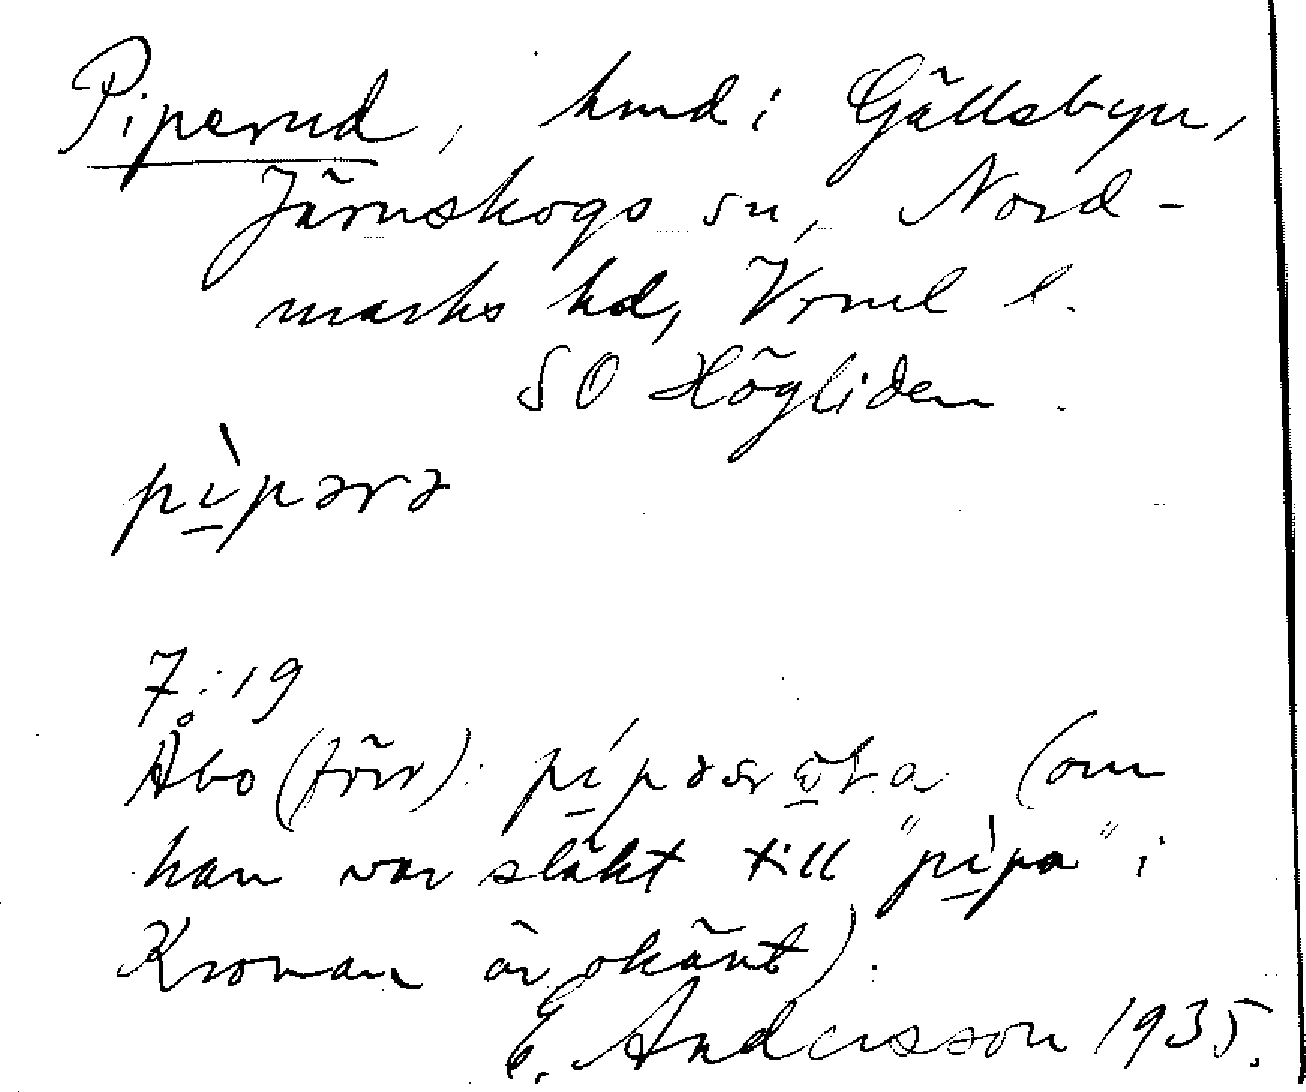 Piperud, hmd i Gällsbyn,
Järnskogs sn, Nord-
marks hd, Vrml l.
SO Högliden.
pìpərə
7:19
Åbo (förr): pípər (om
han var släkt till "pìpa" i
Kronan är okänt).
E. Andersson 1935.